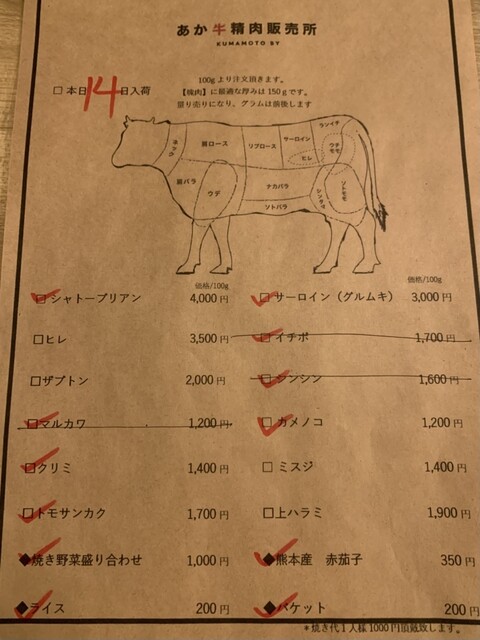 あか牛精肉販売所
KUMAMOTO BY
□本日14日入荷
100gより注文頂きます。
【塊肉】に最適な厚みは150gです。
量り売りになり、グラムは前後します
ネック
肩ロース
リブロース
サーロイン
ランイチ
ヒレ
ウチモモ
肩バラ
ウデ
ナカバラ
ソトバラ
ソトモモ
価格/100g
価格/100g
□シャトーブリアン 4,000円
□サーロイン（グルムキ） 3,000円
□ヒレ 3,500円
□イチボ 1,700円
□ザブトン 2,000円
□シンシン 1,600円
□マルカワ 1,200円
□カメノコ 1,200円
□クリミ 1,400円
□ミスジ 1,400円
□トモサンカク 1,700円
□上ハラミ 1,900円
◆焼き野菜盛り合わせ 1,000円
◆熊本産 赤茄子 350円
◆ライス 200円
◆バケット 200円
*焼き代1人様1000円頂戴致します。